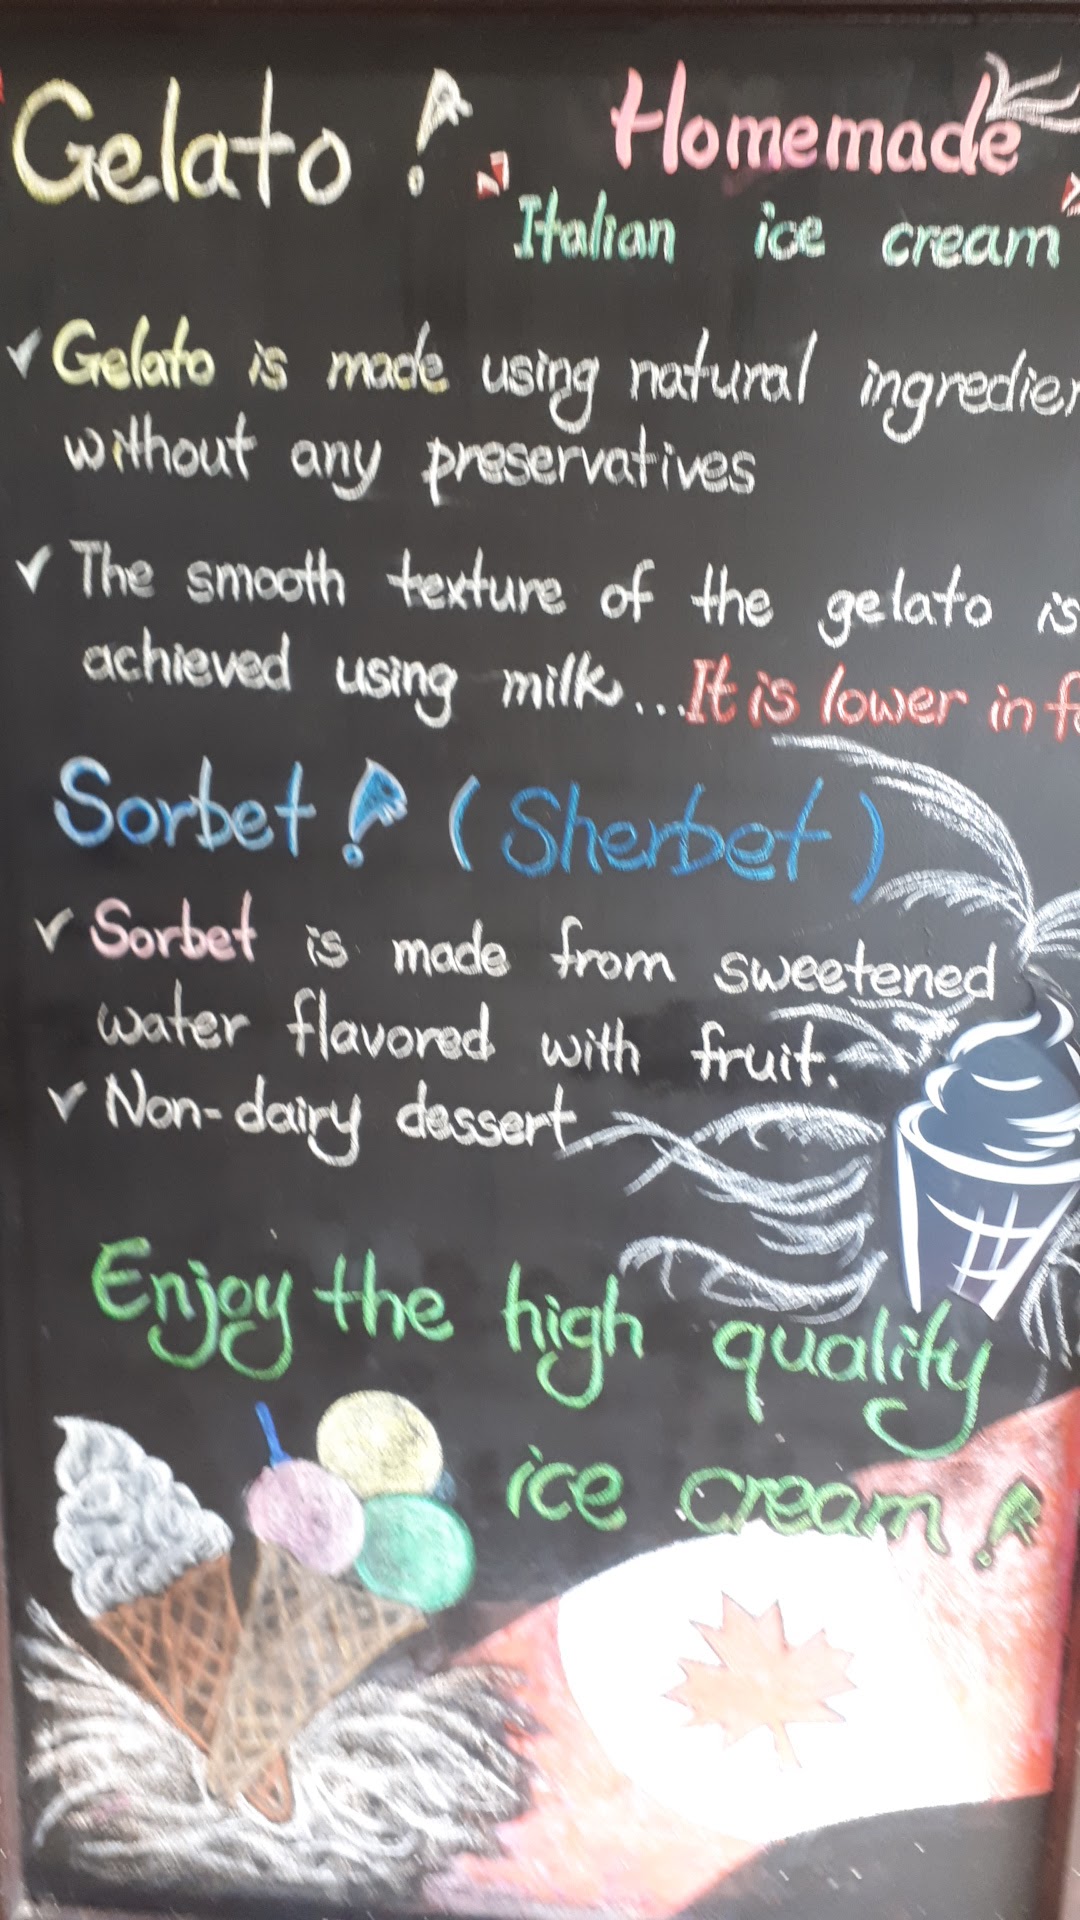 Gelato! Homemade
Italian ice cream
✓ Gelato is made using natural
without any preservatives
✓ The smooth texture of the gelato is
achieved using milk... It is lower in
Sorbet! (Sherbet)
✓ Sorbet is made from sweetened
water flavored with fruit.
✓ Non-dairy dessert.
Enjoy the high quality
ice cream!